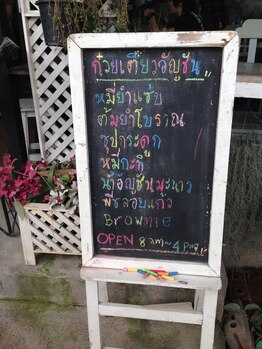 ก๋วยเตี๋ยวอัญชัน
หมี่ยำแซ่บ
ต้มยำโบราณ
ซุปกระดูก
หมี่กะทิ
น้ำอัญชันมะนาว
พืชลอยแก้ว
Brownie
OPEN 8 am~4 pm